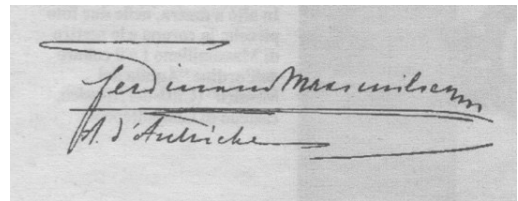 Ferdinand Maximilian
A. d'Autriche